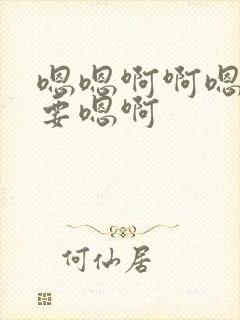 嗯嗯啊啊嗯
要嗯啊
何仙居